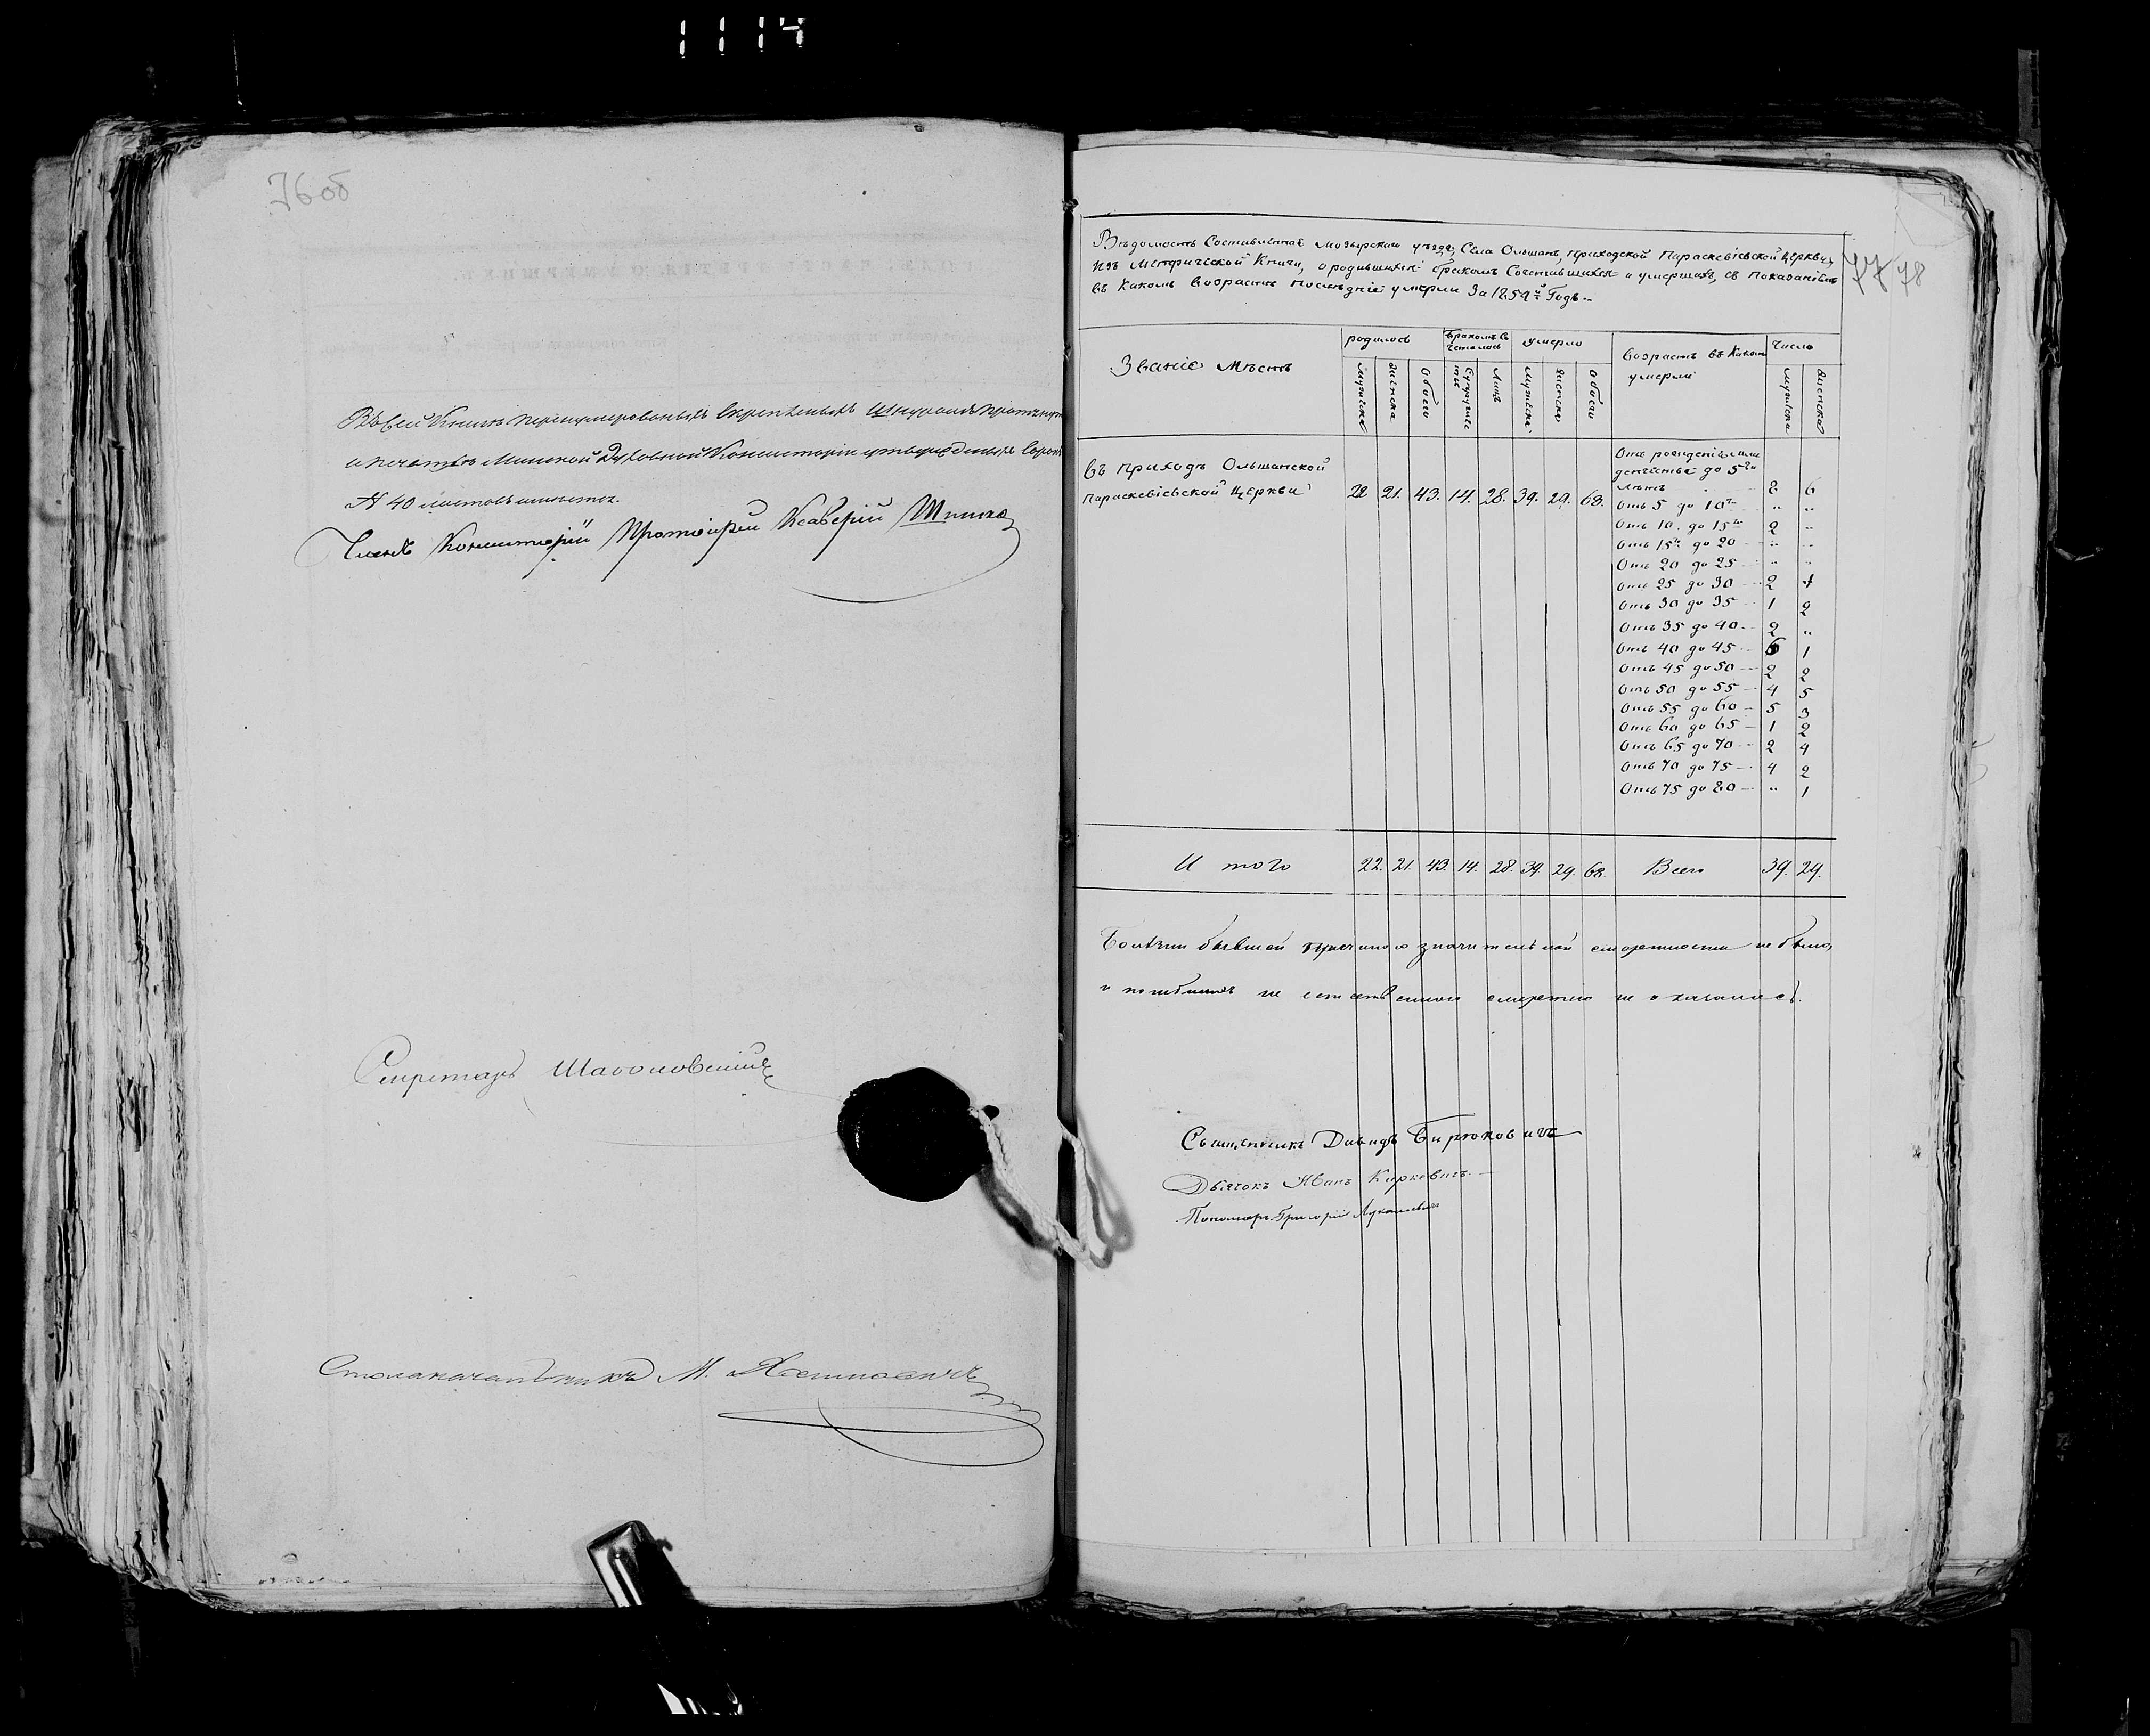 1114
76 об
Въ сей Книгѣ перенумерованыхъ скрепленыхъ Шнуромъ
и печатью Минской Духовной Консисторіи утвержденыхъ
№ 40 листовъ имеется.
Членъ Консисторіи Протоіерей Ксаверій
Секретарь
Столоначальникъ М.
77 78
Вѣдомость Составленная Мозырскаго уѣзда, Села Ольшанъ, приходской Параскевіевской Церкви,
изъ Метрической Книги, о родившихся бракомъ Сочетавшихся и умершихъ, съ показаніемъ
въ Какомъ возрастѣ последніе умерли За 1859й Годъ.
Званіе мѣстъ
родилось
бракомъ Сочеталось
умерло
возрастъ въ Какомъ умерли
Число
мужеска
женска
обоего
Супружествъ
Лицъ
мужеска
женска
обоего
мужеска
женска
въ приходѣ Ольшанской
параскевіевской Церкви 22 21. 43. 14. 28. 39. 29. 68.
Отъ рожденія или
детства до 5ти
лѣтъ 8 6
Отъ 5 до 10ти " "
Отъ 10. до 15ти 2 "
Отъ 15ти до 20 " "
Отъ 20 до 25 " "
Отъ 25 до 30 2 1
Отъ 30 до 35 1 2
Отъ 35 до 40 2 "
Отъ 40 до 45 6 1
Отъ 45 до 50 2 2
Отъ 50 до 55 4 5
Отъ 55 до 60 5 3
Отъ 60 до 65 1 2
Отъ 65 до 70 2 4
Отъ 70 до 75 4 2
Отъ 75 до 80 " 1
И того 22. 21. 43. 14. 28. 39. 29. 68. Всего 39. 29.
Болѣзни бывшей причиною значительной смертности не было,
и погибшихъ не естественною смертію не оказалось.
Священникъ Давидъ Бирюковичъ
Дьячокъ Иванъ Киркевичъ
Пономарь Григорій